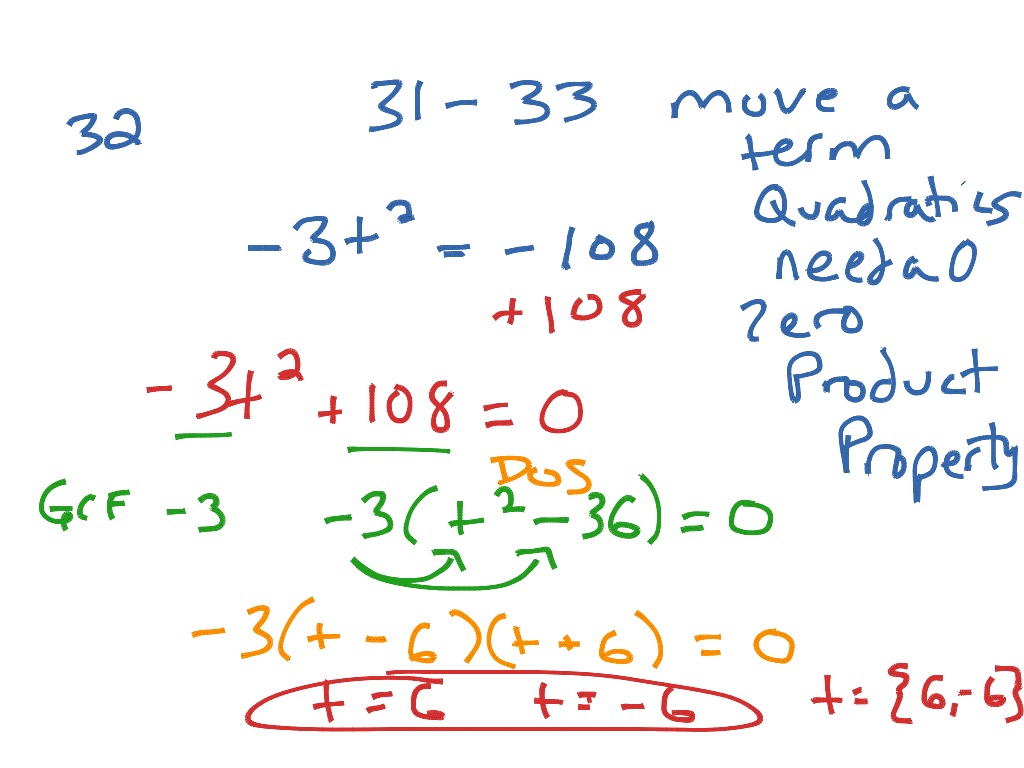 32
31 - 33 move a
term
Quadratics
need a 0
Zero
Product
Property
-3t² = -108
+108
-3t² + 108 = 0
DOS
GCF -3 -3(t² - 36) = 0
-3(t - 6)(t + 6) = 0
t = 6 t = -6 t = {6, -6}